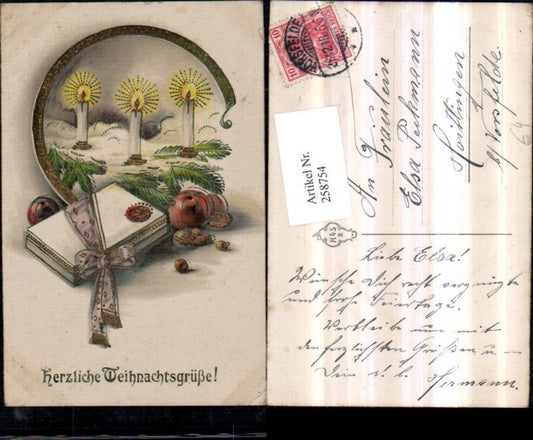 Herzliche Weihnachtsgrüße!
10 10
VORSFELDE
Artikel Nr.
258754
An Fräulein
Elsa
Hoitlingen
b/ Vorsfelde
H&S
B
Liebe Elsa!
Wünsche Dich recht vergnügte
und frohe Feiertage.
Verbleibe nun mit
den herzlichsten Grüßen u —
Dein d. l. Hermann.